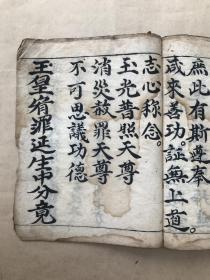 庶此有斯遵奉
咸來善功。証無上道。
志心称念。
玉光普照天尊
消災赦罪天尊
不可思議功德
玉皇宥罪延生中分竟